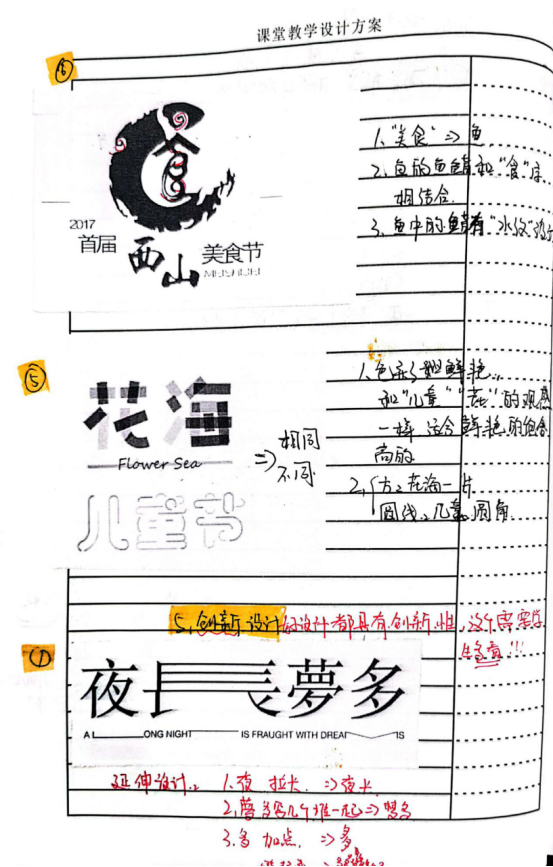 课堂教学设计方案
⑥
1、"美食" => 鱼
2、鱼的鱼鳍和"食"字
相结合.
3、鱼中的鳍有"水纹"设计
食
2017
首届
西山
美食节
MEISHIJIE
⑤
花海
Flower Sea
儿童节
=> 相同
不同
1、色彩 鲜艳、
和"儿童""花"的观感
一样 适合鲜艳的组合
高的
2、方:花海一片
圆线:儿童。圆角.
5、创新设计的设计都具有创新性、这个需要学
生
!!!
①
夜长夢多
A L ONG NIGHT IS FRAUGHT WITH DREAM IS
延伸设计、
1、夜 拉长 => 夜长
2、夢 多字几个堆一起 => 梦多
3、多 加点. => 多